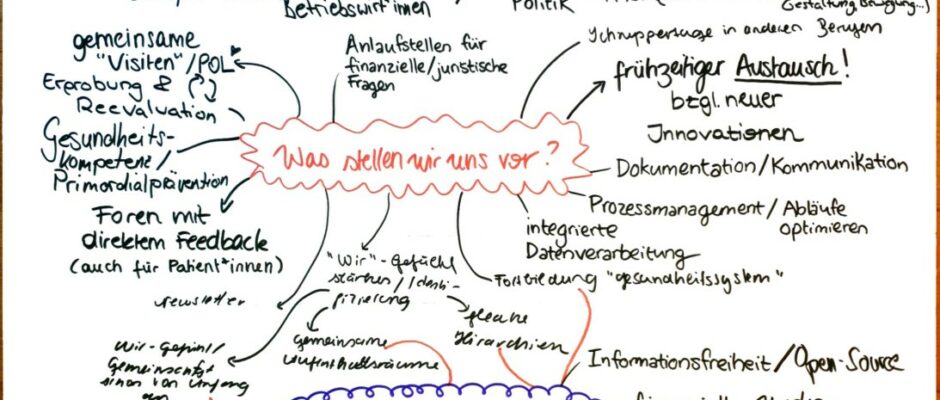 Betriebswirt*innen
Politik
Gestaltung, Bewegung...)
gemeinsame
"Visiten"/POL
Erprobung &
Reevaluation
Gesundheits-
kompetenz/
Primordialprävention
Foren mit
direktem Feedback
(auch für Patient*innen)
Newsletter
Anlaufstellen für
finanzielle/juristische
Fragen
Schnuppertage in anderen Berufen
frühzeitiger Austausch!
bzgl. neuer
Innovationen
Was stellen wir uns vor?
Dokumentation/Kommunikation
Prozessmanagement/Abläufe
optimieren
integrierte
Datenverarbeitung
Fortbildung "gesundheitssystem"
"Wir"-Gefühl
stärken/Identi-
fizierung
flache
Hirarchien
gemeinsame
Aufenthaltsräume
Wir-Gefühl/
Gemeinschaft
von Anfang
an
Informationsfreiheit/Open-Source